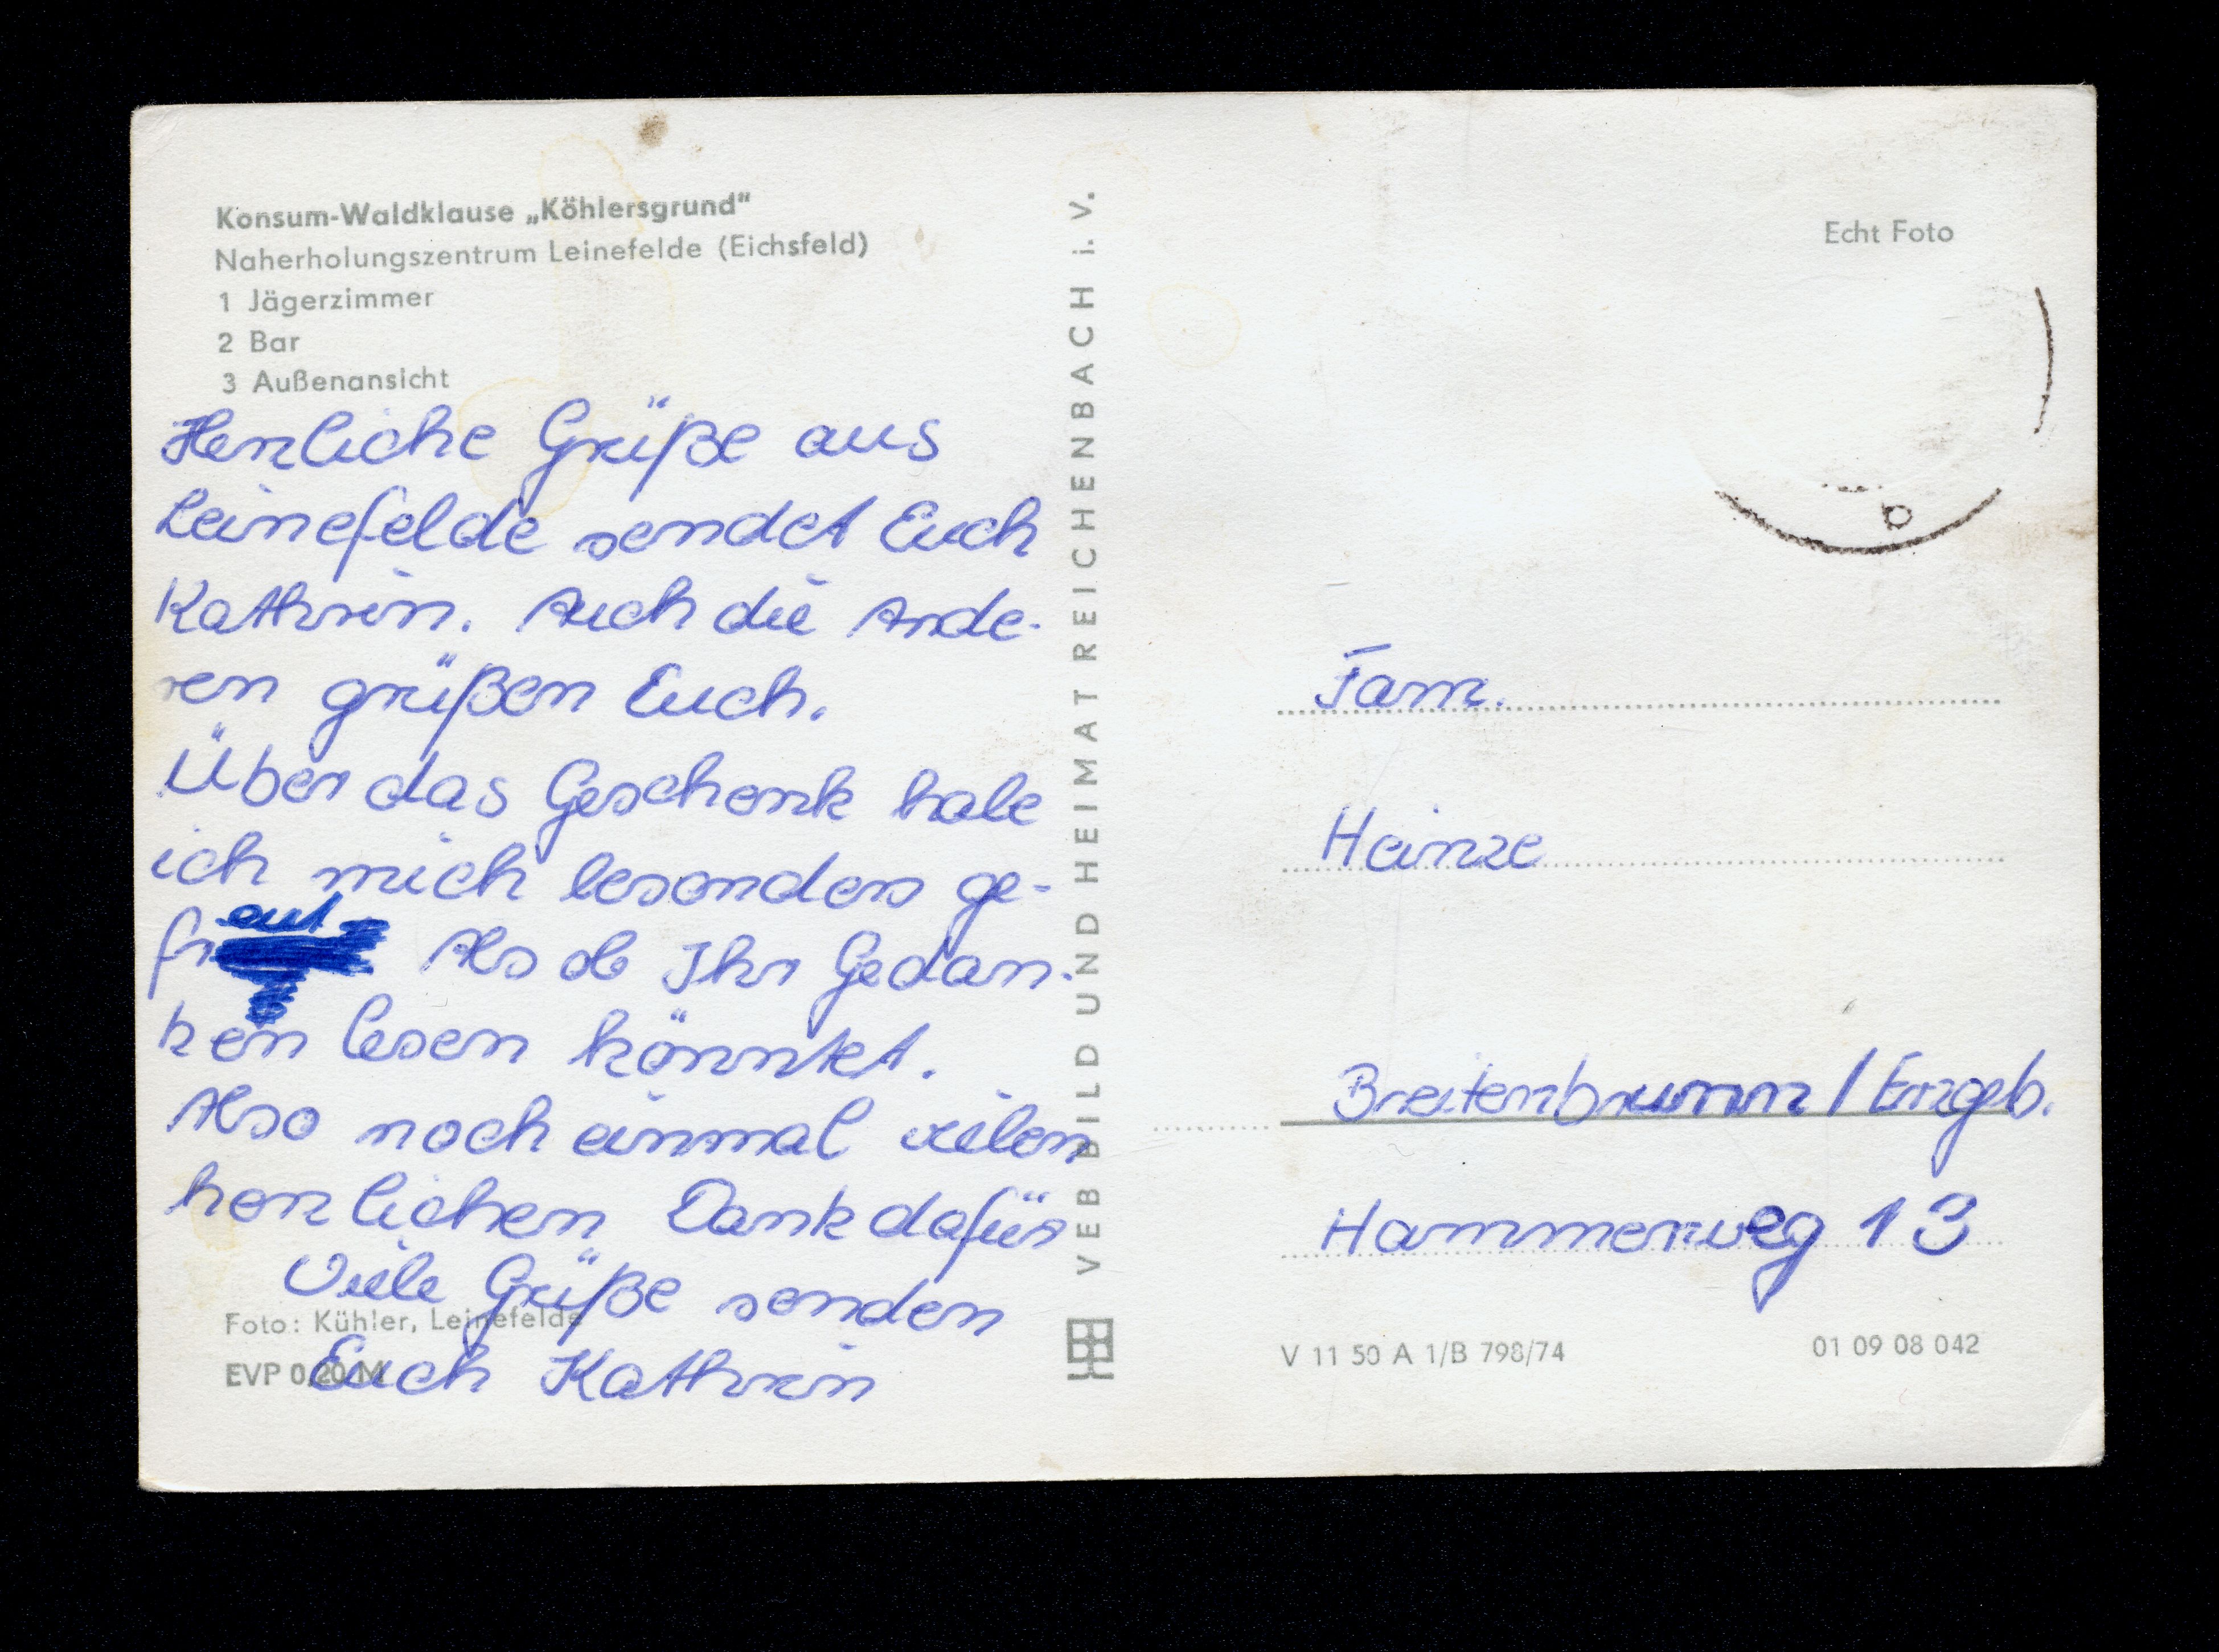 Konsum-Waldklause „Köhlersgrund“
Naherholungszentrum Leinefelde (Eichsfeld)
1 Jägerzimmer
2 Bar
3 Außenansicht
Herzliche Grüße aus
Leinefelde sendet Euch
Kathrin. Auch die Ande-
ren grüßen Euch.
Über das Geschenk habe
ich mich besonders ge-
freut Als ob Ihr Gedan-
ken lesen könntet.
Also noch einmal vielen
herzlichen Dank dafür
Viele Grüße senden
Euch Kathrin
Foto: Kühler, Leinefelde
EVP 0,20 M
VEB BILD UND HEIMAT REICHENBACH i. V.
Echt Foto
Fam.
Heinze
Breitenbrunn / Erzgeb.
Hammerweg 13
V 11 50 A 1/B 798/74
01 09 08 042